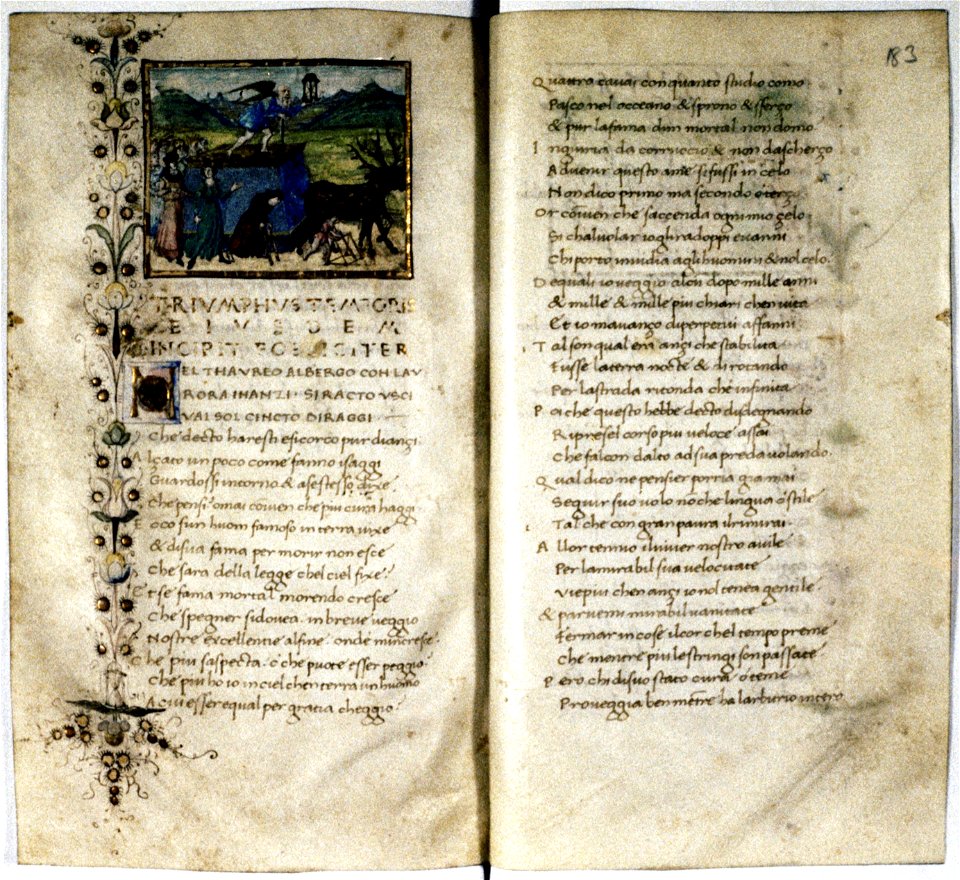 TRIVMPHVS TEMPORIS
EIVSDEM
INCIPIT FOELICITER
EL THAVREO ALBERGO CON LAV
RORA INANZI · SI RACTO VSCI
VA IL SOL CINCTO DI RAGGI
Che decto haresti e si corco pur dianzi
Alçato un poco come fanno i saggi
Guardossi intorno & a se stesso dixe
Che pensi omai coven che piu cura haggi
Ecco sun huom famoso in terra vixe
& di sua fama per morir non esce
Che sara della legge chel ciel fixe
Et se fama mortal morendo cresce
Che spegner si dovea in breve veggio
Nostre excellentie al fine onde mincresce
Che piu saspecta o che puote esser peggio
Che piu ho io in ciel chen terra un huomo
A cui esser equal per gratia cheggio
183
Quattro cavai con quanto studio como
Pasco nel occeano & sprono & sferço
& pur la fama dun mortal non domo
Ingiuria da corruccio & non da scherço
Advenir questo a me si fussi in celo
Non dico primo ma secondo o terço
Or coven che saccenda ogni mio çelo
Si chal volar io gli radoppi e vanni
Chi porto invidia agli huomini & nol celo
De quali io veggio alcun dopo mille anni
& mille & mille piu chiari chen vita
Et io mavanço di perpetui affanni
Tal son qual era ançi che stabilita
Fusse la terra nocte & di rotando
Per la strada ritonda che infinita
Poi che questo hebbe decto disdegnando
Ripresel corso piu veloce assai
Che falcon dalto ad sua preda volando
Qual dico ne pensier porria gia mai
Seguir suo volo non che lingua o stile
Tal che con gran paura il rimirai
Allor tenn io il viver nostro a vile
Per la mirabil sua velocitate
Vie piu chen ançi io nol tenea gentile
& parvemi mirabil vanitate
Fermar in cose il cor chel tempo preme
Che mentre piu le stringi son passate
Pero chi di suo stato cura o teme
Proveggia ben mentre ha larbitrio intero